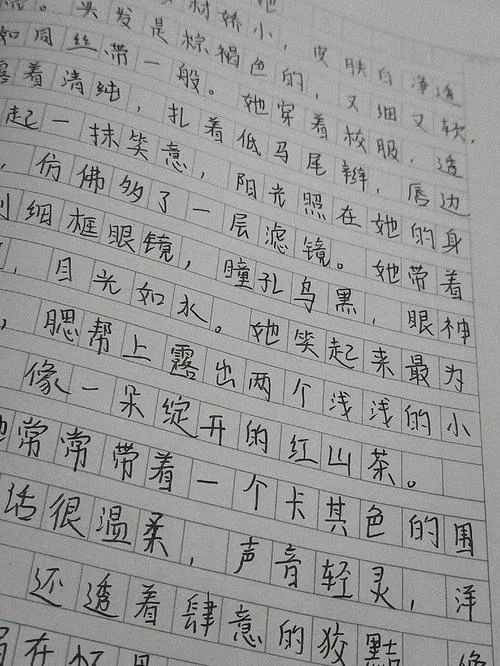 她
材娇小，皮肤白净透
。头发是棕褐色的，又细又软，
如同丝带一般。她穿着校服，透
露着清纯，扎着低马尾辫，唇边
起一抹笑意，阳光照在她的身
，仿佛多了一层滤镜。她带着
细框眼镜，瞳孔乌黑，眼神
，目光如水。她笑起来最为
，腮帮上露出两个浅浅的小
像一朵绽开的红山茶。
她常常带着一个卡其色的围
话很温柔，声音轻灵，洋
还透着肆意的狡黠，像
在怀里